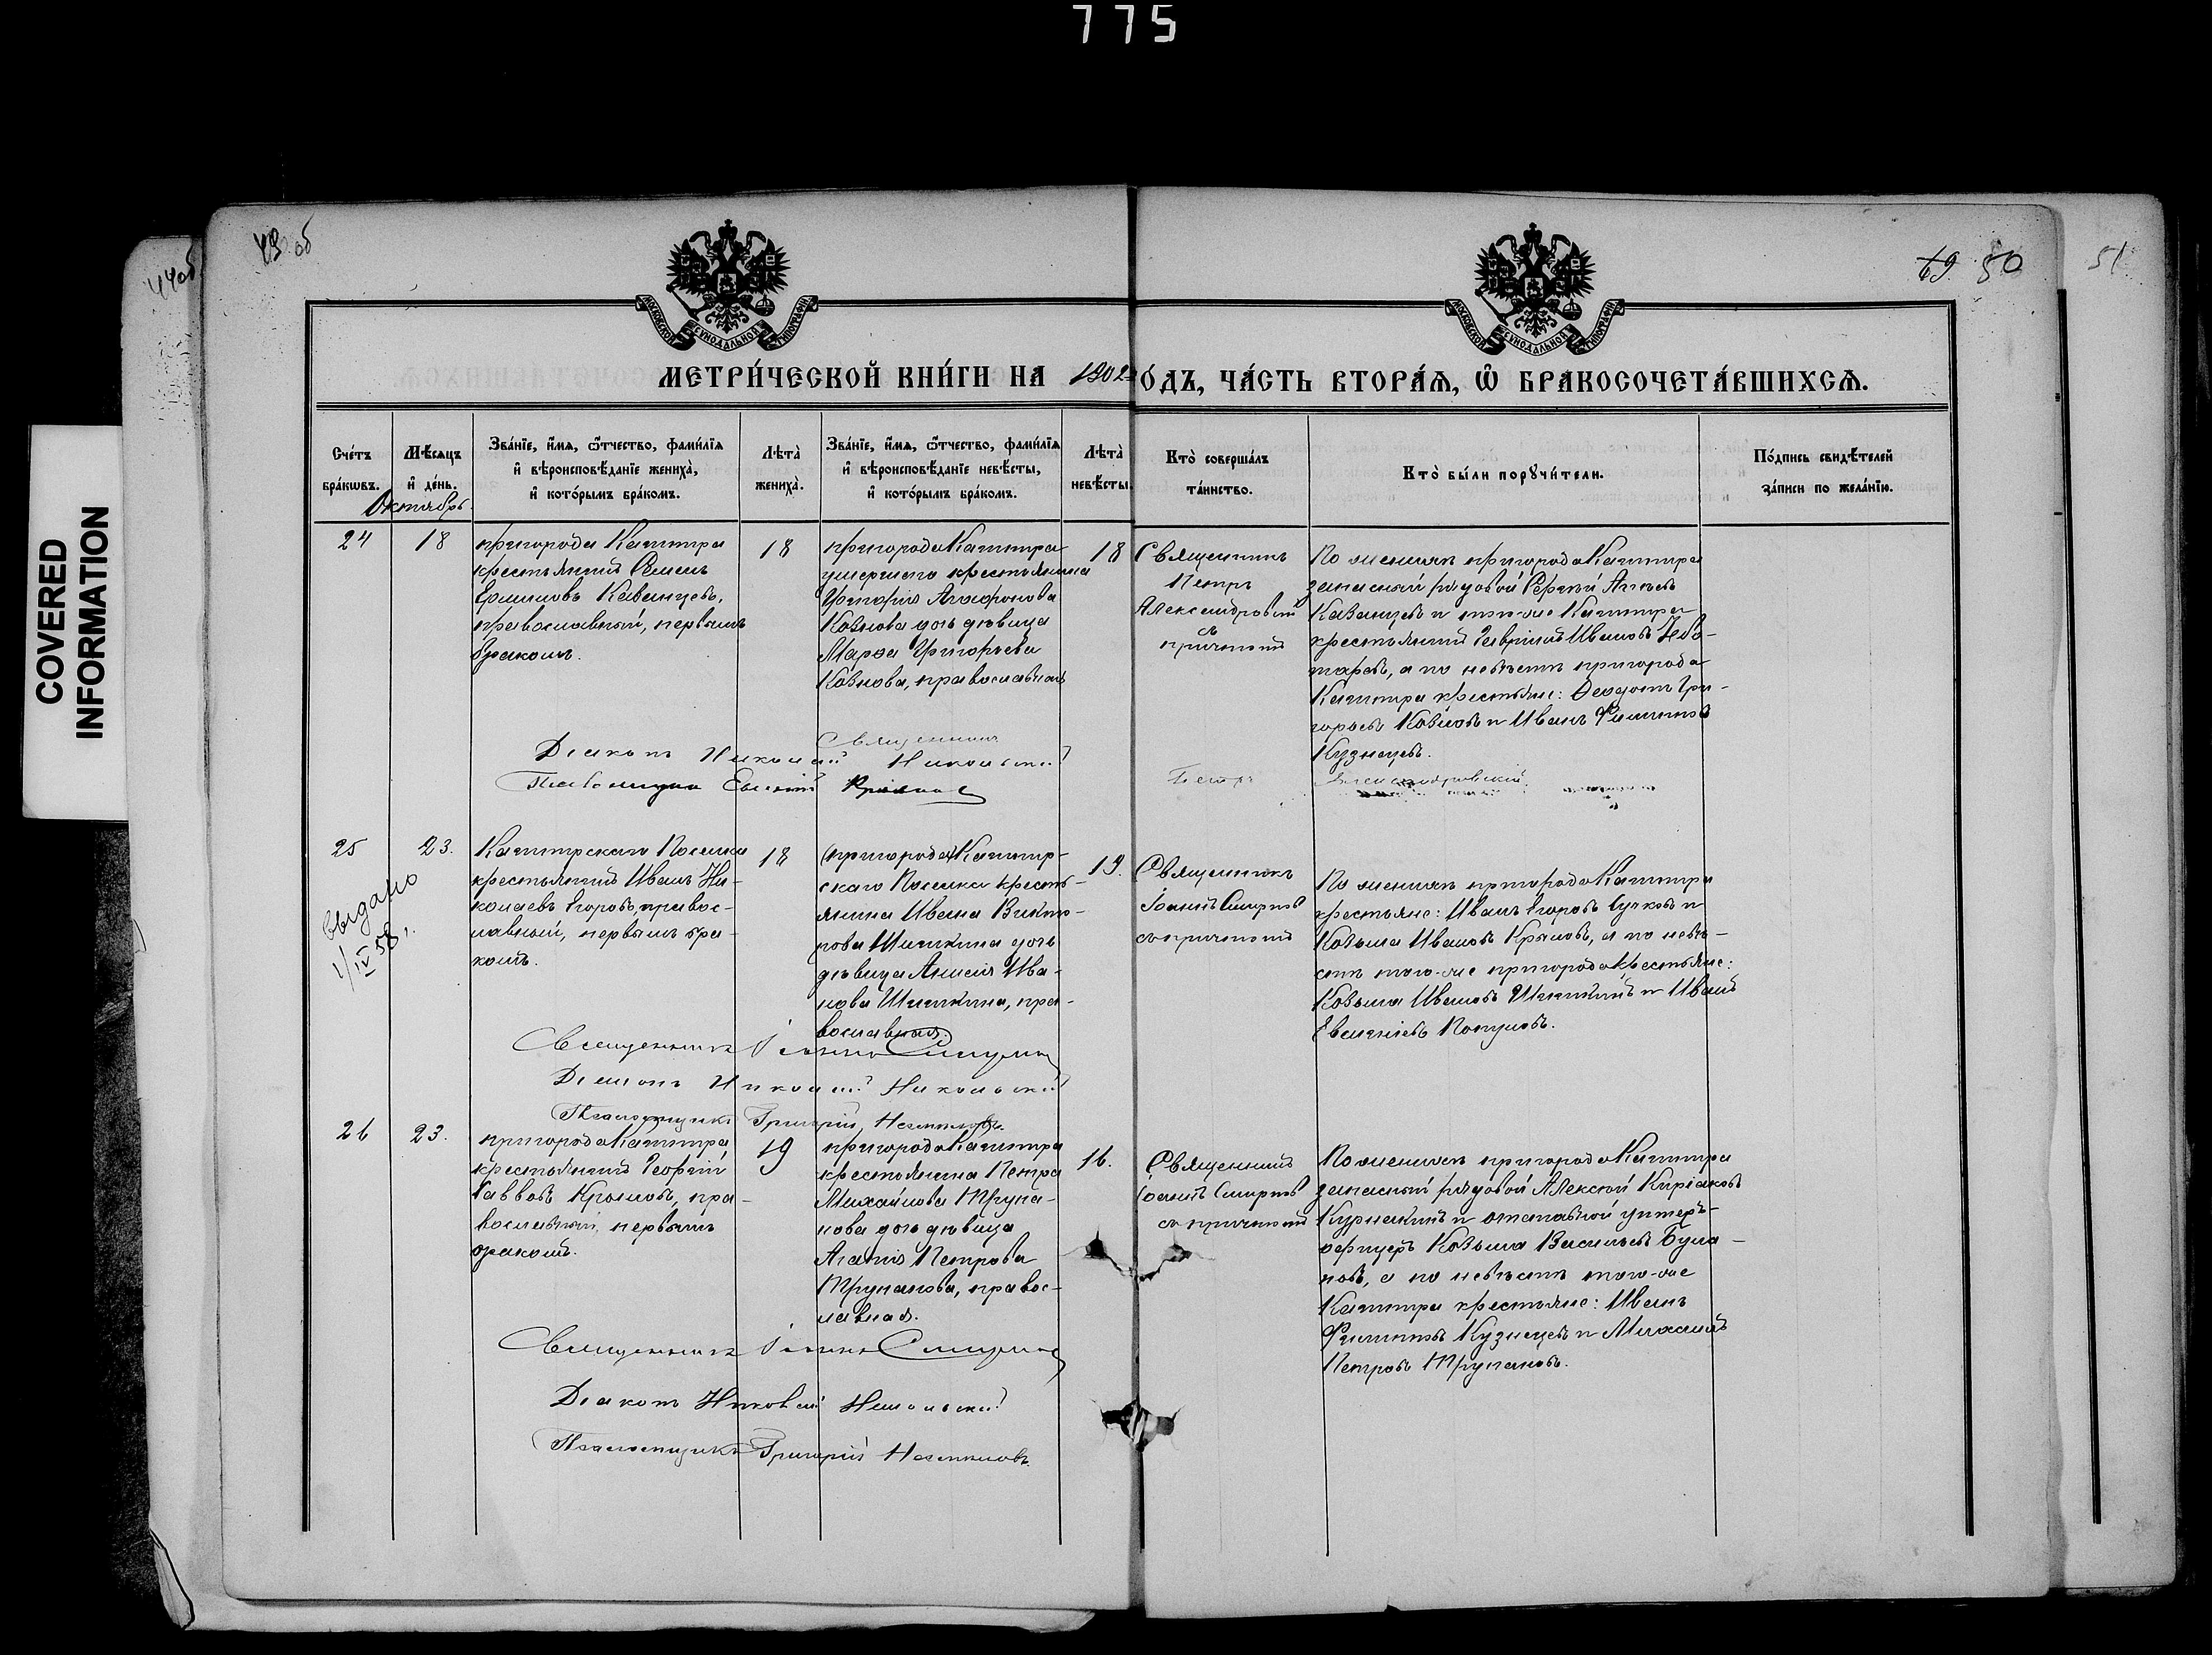 775
COVERED
INFORMATION
44об
49 об
69 50
51
МОСКОВСКОЙ СѴНОДАЛЬНОЙ ТИПОГРАФІИ
МОСКОВСКОЙ СѴНОДАЛЬНОЙ ТИПОГРАФІИ
МЕТРИ́ЧЕСКОЙ КНИ́ГИ НА 1902 О́ДЪ, ЧА́СТЬ ВТОРА́Ѧ, Ѽ БРАКОСОЧЕТА́ВШИХСѦ.
Сче́тъ
бра́кѡвъ.
Мѣ́сѧцъ
и҆ де́нь.
Зва́нїе, и҆́мѧ, ѻ҆́тчество, фами́лїѧ
и҆ вѣроисповѣ́данїе жениха̀,
и҆ кото́рымъ бра́комъ.
Лѣ̀та
жениха̀.
Зва́нїе, и҆́мѧ, ѻ҆́тчество, фами́лїѧ
и҆ вѣроисповѣ́данїе невѣ́сты,
и҆ кото́рымъ бра́комъ.
Лѣ̀та
невѣ́сты.
Кто̀ соверша́лъ
та́инство.
Кто̀ бы́ли порꙋчи́тели.
По́дпись свидѣ́телей
за́писи по жела́нїю.
Октябрь.
24
18
пригорода Каштира
крестьянинъ
Казанцевъ,
православный, первымъ
бракомъ.
18
пригорода Каштира
умершаго крестьянина
Григорія Агафонова
Козлова дочь девица
Марѳа Григорьева
Козлова, православная
18
Священникъ
Петръ
Александровскій
съ
причтомъ
По женихѣ пригорода Каштира
запасный рядовой Сергѣй
Казанцевъ и того-же Каштира
крестьянинъ Гавріилъ Ивановъ Чебо-
таревъ, а по невѣстѣ пригорода
Каштира крестьяне: Ѳеодотъ Гри-
горьевъ Козловъ и Иванъ Филиповъ
Кузнецовъ.
Священникъ Петръ Александровскій
Діаконъ Николай Никольскій
Псаломщикъ Евгеній
25
выдано
1/IV 58 г.
23.
Каштирскаго Поселка
крестьянинъ Иванъ Ни-
колаевъ Егоровъ, правос-
лавный, первымъ бра-
комъ.
18
(пригорода) Каштир-
скаго Поселка кресть-
янина Ивана Викто-
рова Шишкина дочь
девица Анисія Ива-
нова Шишкина, пра-
вославная.
19.
Священникъ
Іоаннъ Смирновъ
съ причтомъ
По женихѣ пригорода Каштира
крестьяне: Иванъ Егоровъ Сучковъ и
Козьма Ивановъ Крыловъ, а по невѣ-
стѣ того-же пригорода крестьяне:
Козьма Ивановъ Шишкинъ и Иванъ
Евгеніевъ
Священникъ Іоаннъ Смирновъ
Діаконъ Николай Никольскій
Псаломщикъ Григорій
26
23.
пригорода Каштира
крестьянинъ Георгій
Савво въ Крыловъ, пра-
вославный, первымъ
бракомъ.
19
пригорода Каштира
крестьянина Петра
Михайлова Трупа-
нова дочь девица
Агапія Петрова
Трупанова, правос-
лавная.
16.
Священникъ
Іоаннъ Смирновъ
съ причтомъ
По женихѣ пригорода Каштира
запасный рядовой Алексѣй Киріаковъ
и отставной унтеръ-
офицеръ Козьма Васильевъ Була-
новъ, а по невѣстѣ того-же
Каштира крестьяне: Иванъ
Филиповъ Кузнецовъ и Михаилъ
Петровъ Трупановъ.
Священникъ Іоаннъ Смирновъ
Діаконъ Николай Никольскій
Псаломщикъ Григорій